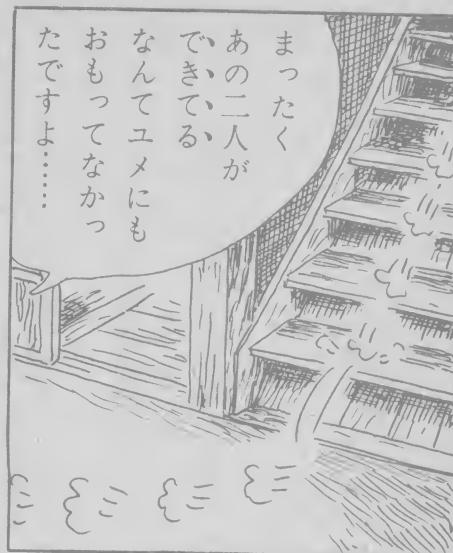 まったく
あの二人が
できてる
なんてユメにも
おもってなかっ
たですよ……